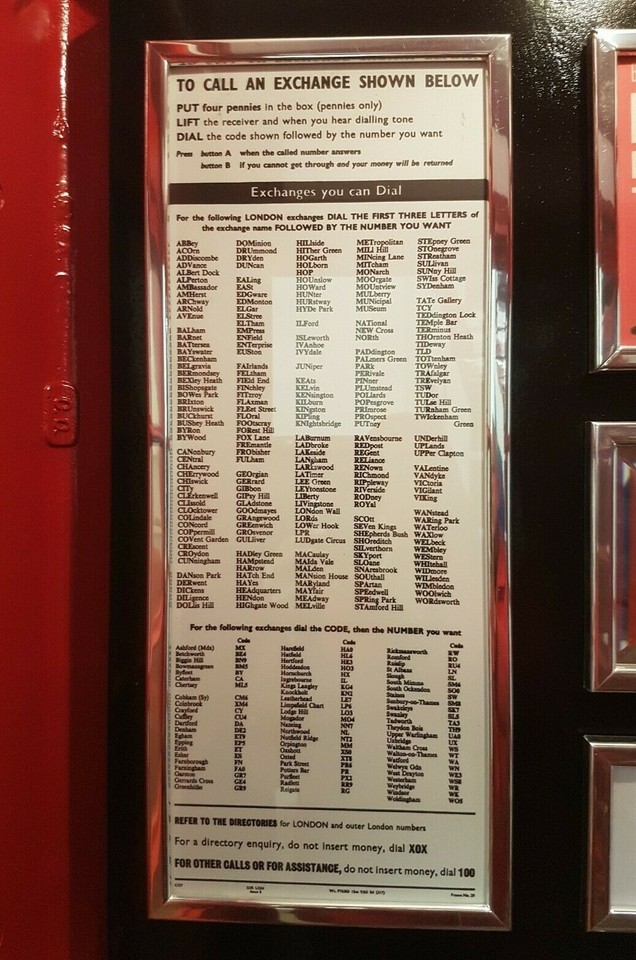 TO CALL AN EXCHANGE SHOWN BELOW
PUT four pennies in the box (pennies only)
LIFT the receiver and when you hear dialling tone
DIAL the code shown followed by the number you want
Press button A when the called number answers
button B if you cannot get through and your money will be returned
Exchanges you can Dial
For the following LONDON exchanges DIAL THE FIRST THREE LETTERS of
the exchange name FOLLOWED BY THE NUMBER YOU WANT
ABBey
ACOrn
ADDiscombe
ADVance
ALBert Dock
ALPerton
AMBassador
AMHerst
ARChway
ARNold
AVEnue
BALham
BARnet
BATtersea
BAYswater
BECkenham
BELgravia
BERmondsey
BEXley Heath
BIShopsgate
BOWes Park
BRIxton
BRUnswick
BUCkhurst
BUShey Heath
BYRon
BYWood
CANonbury
CENtral
CHAncery
CHErrywood
CHIswick
CITy
CLErkenwell
CLIssold
CLOcktower
COLindale
CONcord
COPpermill
COVent Garden
CREscent
CROydon
CUNningham
DANson Park
DERwent
DICkens
DILigence
DOLlis Hill
DOMinion
DRUmmond
DRYden
DUNcan
EALing
EASt
EDGware
EDMonton
ELGar
ELStree
ELTham
EMPress
ENField
ENTerprise
EUSton
FAIrlands
FELtham
FIEld End
FINchley
FITzroy
FLAxman
FLEet Street
FLOral
FOOtscray
FORest Hill
FOX Lane
FREmantle
FRObisher
FULham
GEOrgian
GERrard
GIBbon
GIPsy Hill
GLAdstone
GOOdmayes
GRAngewood
GREenwich
GROsvenor
GULliver
HADley Green
HAMpstead
HARrow
HATch End
HAYes
HEAdquarters
HENdon
HIGhgate Wood
HILlside
HITher Green
HOGarth
HOLborn
HOP
HOUnslow
HOWard
HUNter
HURstway
HYDe Park
ILFord
ISLeworth
IVAnhoe
IVYdale
JUNiper
KEAts
KELvin
KENsington
KILburn
KINgston
KIPling
KNIghtsbridge
LABurnum
LADbroke
LAKeside
LANgham
LARkswood
LATimer
LEE Green
LEYtonstone
LIBerty
LIVingstone
LONdon Wall
LORds
LOWer Hook
LPR
LUDgate Circus
MACaulay
MAIda Vale
MALden
MANsion House
MARyland
MAYfair
MEAdway
MELville
METropolitan
MILl Hill
MINcing Lane
MITcham
MONarch
MOOrgate
MOUntview
MULberry
MUNicipal
MUSeum
NATional
NEW Cross
NORth
PADdington
PALmers Green
PARk
PERivale
PINner
PLUmstead
POLlards
POPesgrove
PRImrose
PROspect
PUTney
RAVensbourne
REDpost
REGent
RELiance
RENown
RIChmond
RIPpleway
RIVerside
RODney
ROYal
SCOtt
SEVen Kings
SHEpherds Bush
SHOreditch
SILverthorn
SKYport
SLOane
SNAresbrook
SOUthall
SPArtan
SPEedwell
SPRing Park
STAmford Hill
STEpney Green
STOnegrove
STReatham
SULlivan
SUNny Hill
SWIss Cottage
SYDenham
TATe Gallery
TCY
TEDdington Lock
TEMple Bar
TERminus
THOrnton Heath
TIDeway
TLD
TOTtenham
TOWnley
TRAfalgar
TREvelyan
TSW
TUDor
TULse Hill
TURnham Green
TWIckenham
Green
UNDerhill
UPLands
UPPer Clapton
VALentine
VANdyke
VICtoria
VIGilant
VIKing
WANstead
WARing Park
WATerloo
WAXlow
WELbeck
WEMbley
WEStern
WHItehall
WIDmore
WILlesden
WIMbledon
WOOlwich
WORdsworth
For the following exchanges dial the CODE, then the NUMBER you want
Code
Ashford (Mdx) MX
Betchworth BE4
Biggin Hill BN9
Bowmansgreen BM5
Byfleet BY
Caterham CA
Chertsey ML5
Cobham (Sy) CM6
Colnbrook XM4
Crayford CY
Cuffley CU4
Dartford DA
Denham DE2
Egham ET9
Epping EP5
Erith ET
Esher ES
Farnborough FN
Farningham FA0
Garston GR7
Gerrards Cross GE4
Greenhithe GR9
Code
Harefield HA0
Hatfield HL6
Hertford HE3
Hoddesdon HO3
Hornchurch HX
Ingrebourne IL
Kings Langley KG4
Knockholt KN2
Leatherhead LE7
Limpsfield Chart LP6
Lodge Hill LO5
Mogador MO4
Nazeing NN7
Northwood NL
Nutfield Ridge NT2
Orpington MM
Oxshott XS0
Oxted XT8
Park Street PR6
Potters Bar PR
Purfleet PX2
Radlett RR9
Reigate RG
Code
Rickmansworth RW
Romford RO
Ruislip RU4
St Albans LN
Slough SL
South Mimms SM6
South Ockendon SO6
Staines SW
Sunbury-on-Thames SM8
Swakeleys SK7
Swanley SL5
Tadworth TA3
Theydon Bois TH9
Upper Warlingham UA0
Uxbridge UX
Waltham Cross WS
Walton-on-Thames WT
Watford WA
Welwyn Gdn WN
West Drayton WE3
Westerham WS8
Weybridge WR
Windsor WK
Woldingham WO5
REFER TO THE DIRECTORIES for LONDON and outer London numbers
For a directory enquiry, do not insert money, dial XOX
FOR OTHER CALLS OR FOR ASSISTANCE, do not insert money, dial 100